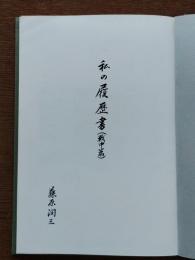 私の履歴書(戦中篇)
藤原潤三